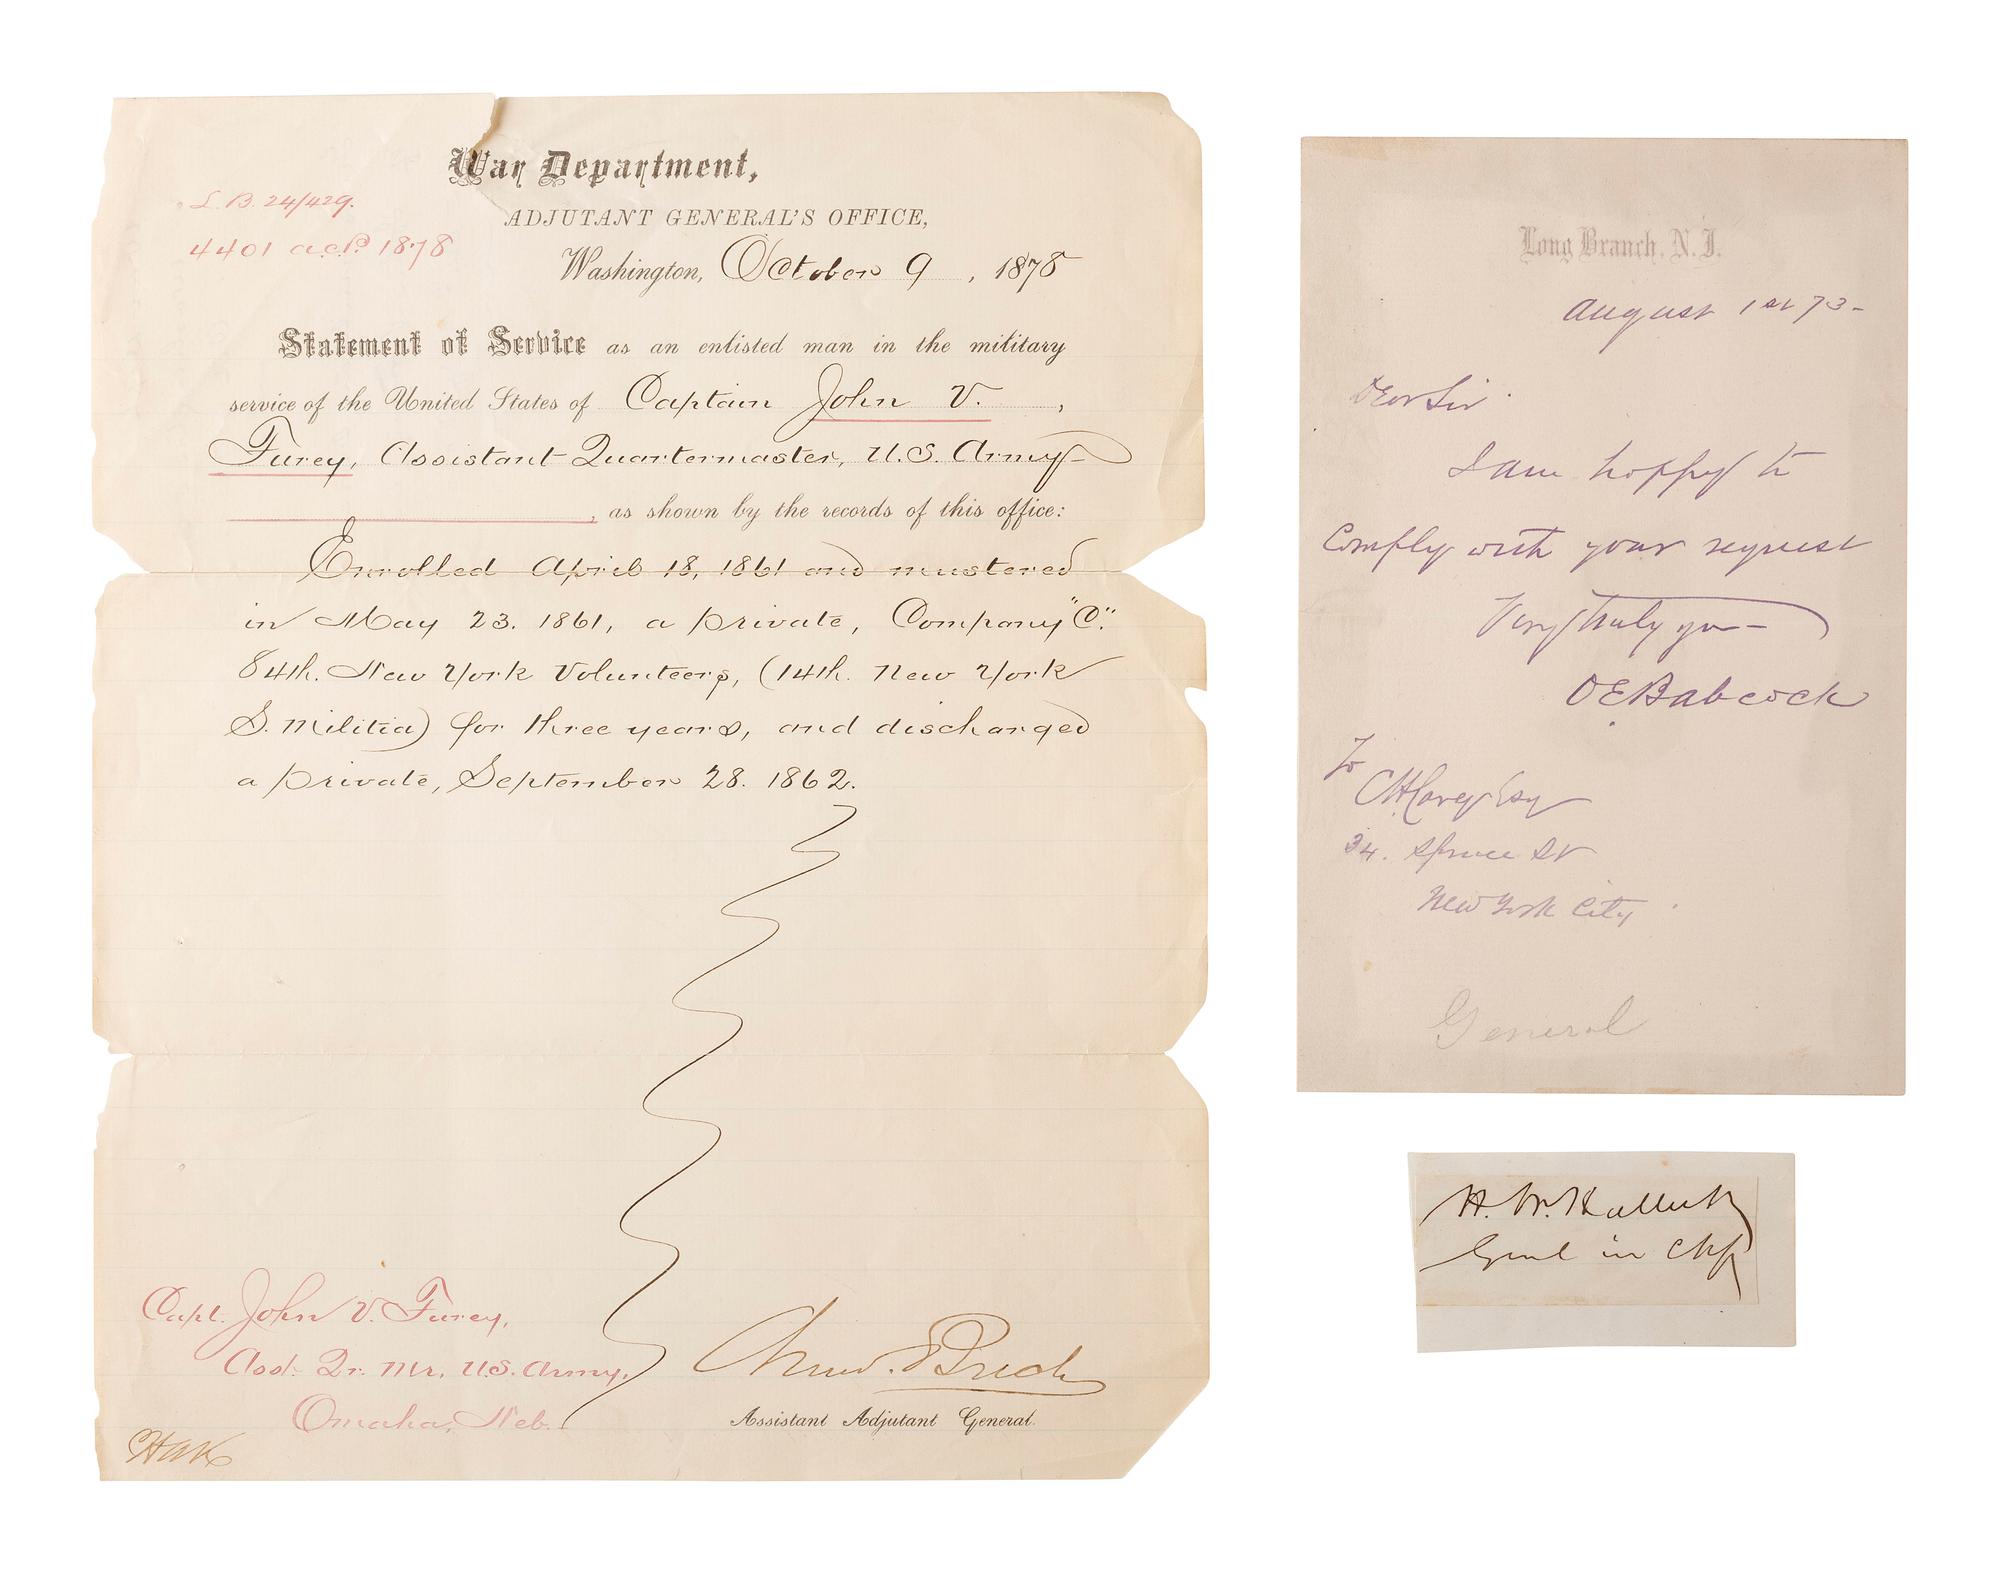 War Department,
L.B. 24/429.
ADJUTANT GENERAL'S OFFICE,
4401 a.c.P. 1878
Washington, October 9, 1878
Statement of Service as an enlisted man in the military
service of the United States of Captain John V.,
Furey, Assistant Quartermaster, U.S. Army
, as shown by the records of this office:
Enrolled April 18, 1861 and mustered
in May 23. 1861, a private, Company "C".
84th. New York Volunteers, (14th. New York
S. Militia) for three years, and discharged
a private, September 28. 1862.
Capt. John V. Furey,
Asst. Qr. Mr. U.S. Army,
Omaha, Neb.
Assistant Adjutant General.
Long Branch, N.J.
August 1st 73-
Dear Sir
I am happy to
Comply with your request
Very truly yours
O E Babcock
To
C H Carey Esq
34. Spruce St
New York City
General
H. W. Halleck
Genl in Chf